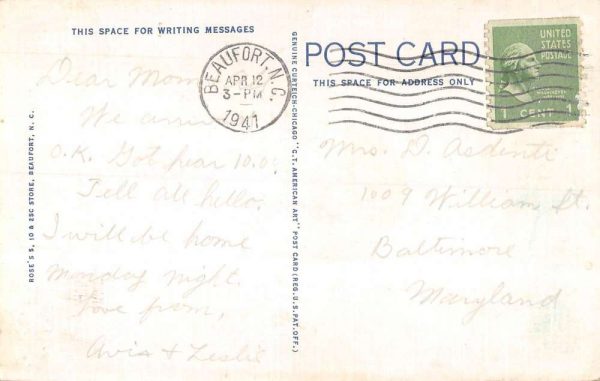 THIS SPACE FOR WRITING MESSAGES
Dear Mom
We arrived
O.K. Got hear 10.0
Tell all hello.
I will be home
Monday night.
Love from,
Avis + Leslie
ROSE'S 5, 10 & 25C STORE, BEAUFORT, N. C.
GENUINE CURTEICH-CHICAGO "C.T. AMERICAN ART" POST CARD (REG. U.S. PAT. OFF.)
BEAUFORT, N.C.
APR 12
3-PM
1941
POST CARD
THIS SPACE FOR ADDRESS ONLY
UNITED
STATES
POSTAGE
WASHINGTON
1 CENT 1
Mrs. D.
1009 William St.
Baltimore
Maryland